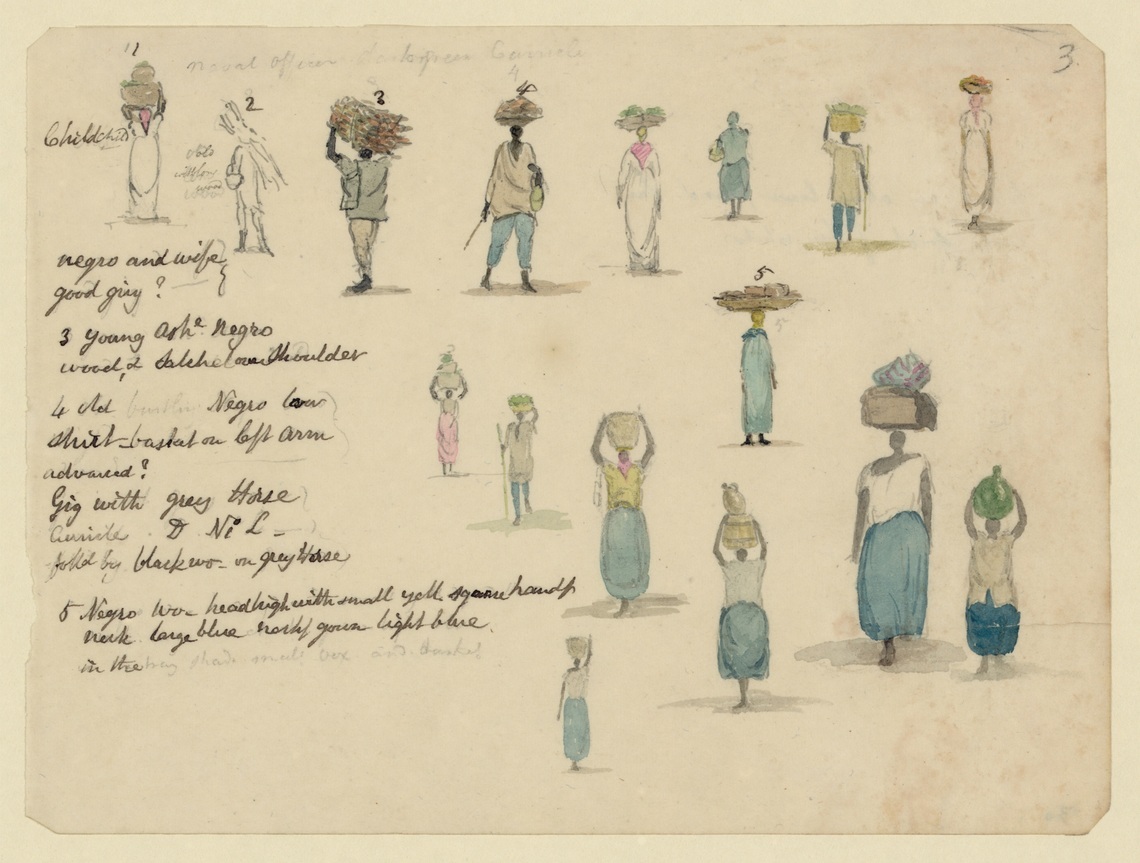 naval officer dark green Curricle
3.
11
2
3
4
4
5
Child
willow
wood
negro and wife
good grey ?
3 young Ashe Negro
wood, & Satchel over Shoulder
4 old Negro low
shirt - basket on left arm
advanced ?
Gig with grey Horse
Curricle . D Ni L -
folld by black wo- on grey Horse
5 Negro wo- head high with small yell square handf
neck large blue neckf gown light blue.
in the shade meat box and basket